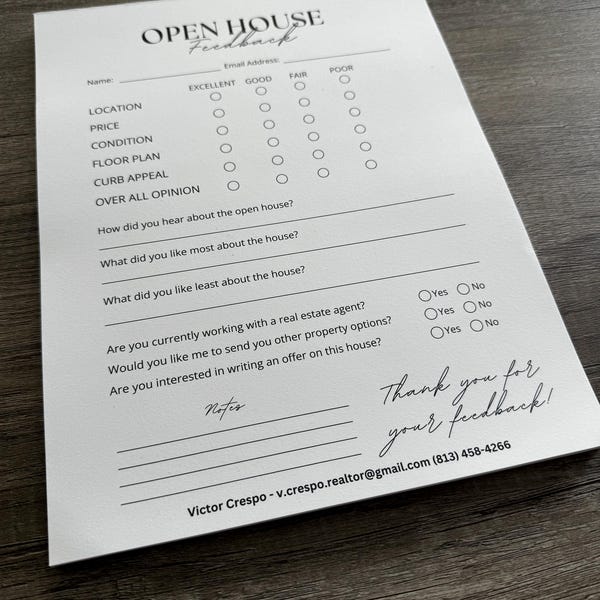 OPEN HOUSE
Feedback
Name: Email Address:
EXCELLENT GOOD FAIR POOR
LOCATION
PRICE
CONDITION
FLOOR PLAN
CURB APPEAL
OVER ALL OPINION
How did you hear about the open house?
What did you like most about the house?
What did you like least about the house?
Are you currently working with a real estate agent? Yes No
Would you like me to send you other property options? Yes No
Are you interested in writing an offer on this house? Yes No
Notes
Thank you for
your feedback!
Victor Crespo - v.crespo.realtor@gmail.com (813) 458-4266